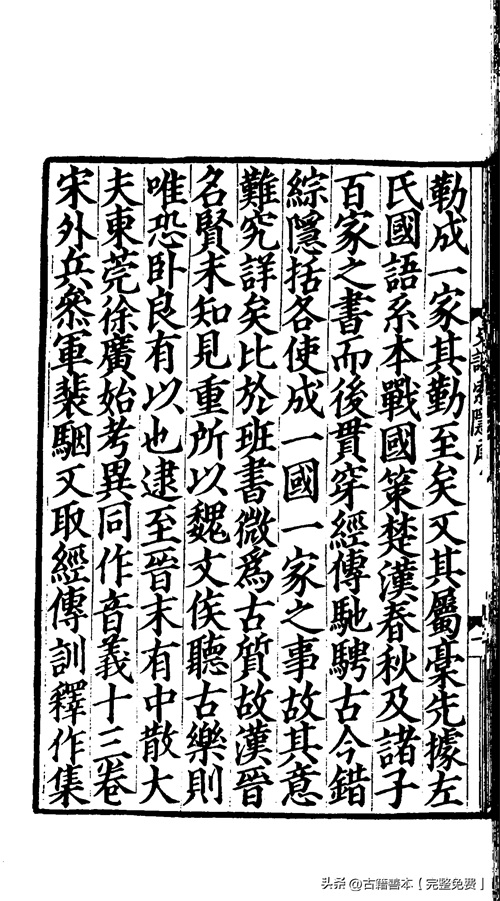 勒成一家其勤至矣又其屬稾先據左
氏國語系本戰國策楚漢春秋及諸子
百家之書而後貫穿經傳馳騁古今錯
綜隱括各使成一國一家之事故其意
難究詳矣比於班書微爲古質故漢晉
名賢未知見重所以魏文侯聽古樂則
唯恐卧良有以也逮至晉末有中散大
夫東莞徐廣始考異同作音義十三卷
宋外兵叅軍裴駰又取經傳訓釋作集
頭条 @古籍善本【完整免费】